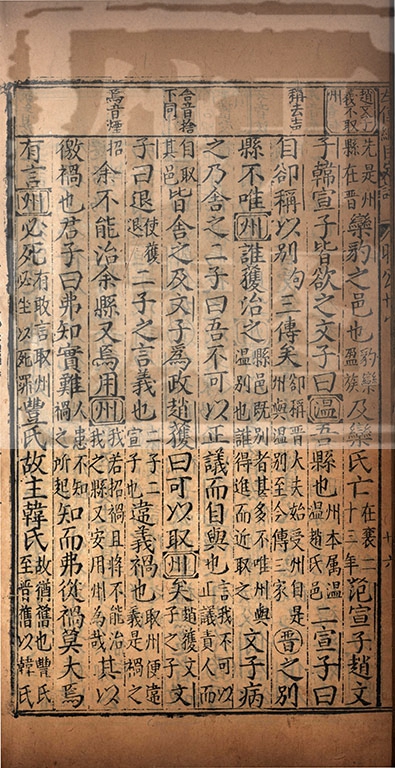 趙文子義不取州
稱去声
舍音捨下同
焉音煙
先是州縣在晉欒豹之邑也豹欒盈族及欒氏亡在襄二十三年范宣子趙文
子韓宣子皆欲之文子曰温吾縣也州本属温温趙氏邑二宣子曰
自郤稱以別三傳矣郤稱晉大夫始受州自是州與温別至今傳三家晉之別
縣不唯州誰獲治之縣邑既別者甚多不唯州與温別也誰得進而近取之文子病
之乃舍之二子曰吾不可以正議而自與也言我不可以正議責人而
自取其邑皆舍之及文子為政趙獲曰可以取州矣趙獲文子文
子曰退使獲退二子之言義也二子二宣子也違義禍也取州便違義是禍之
招余不能治余縣又焉用州我若招禍且將不能治我之縣又安用州為哉其以
徼禍也君子曰弗知實難人患不知禍之所起知而弗從禍莫大焉
有言州必死有敢言取州必生以死罪豐氏故主韓氏故猶舊也豐氏至晉舊以韓氏